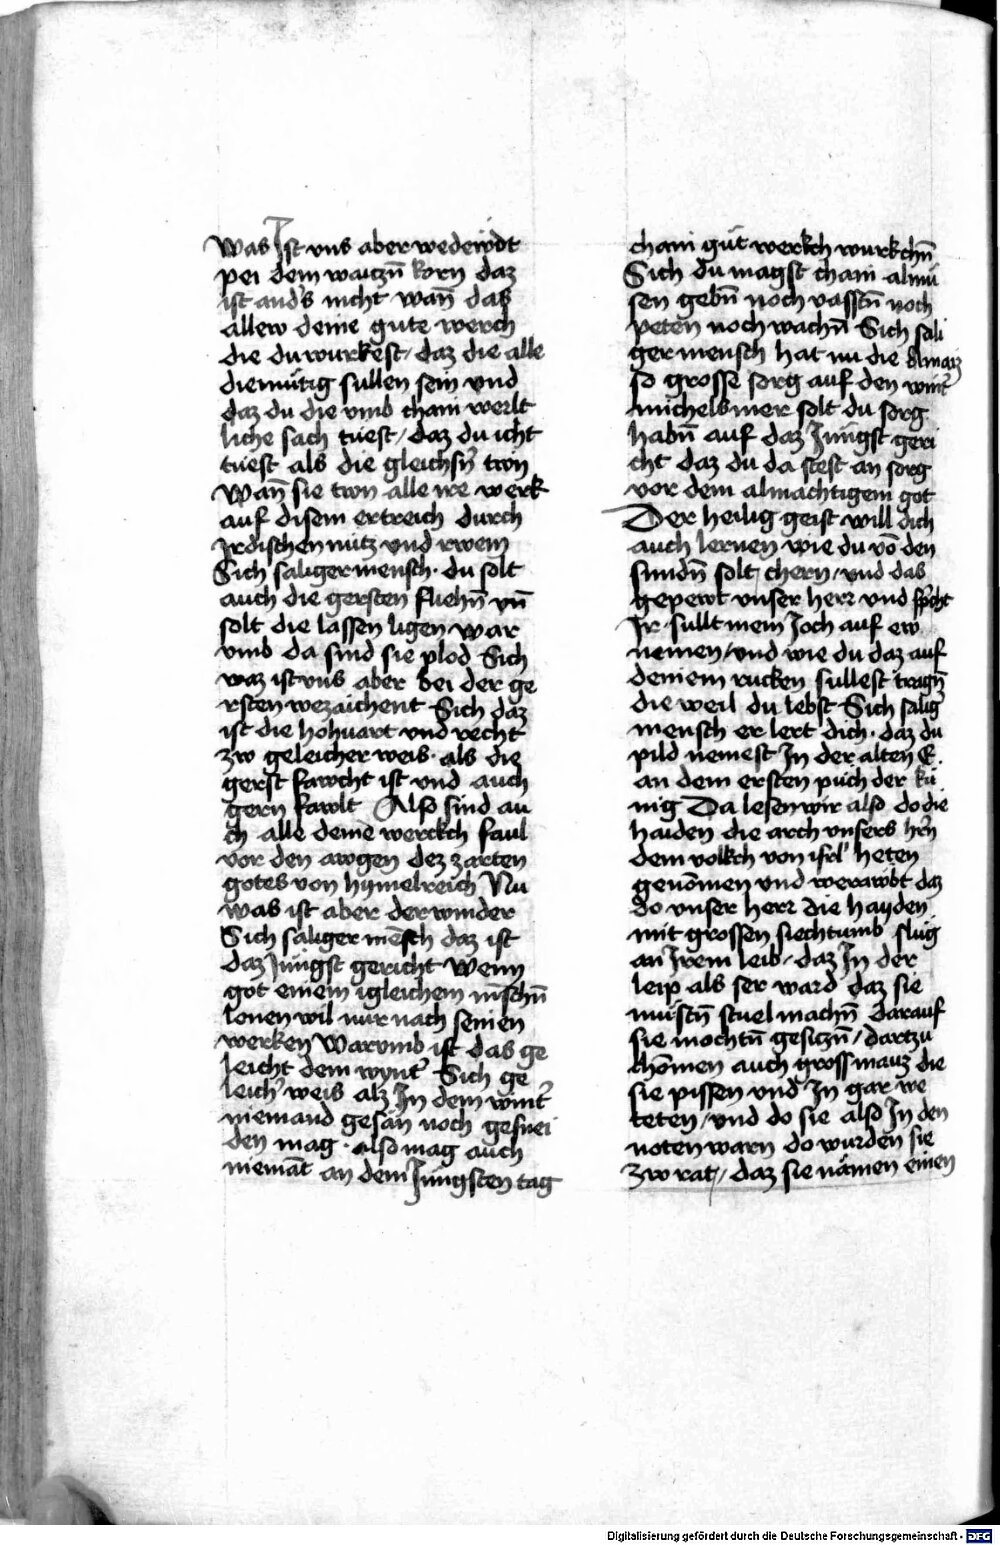 Was Ist vns aber wedewt
pei dem waitzn̄ korn daz
ist and's nicht wan̄ das
allew deine gute werch
die du wurkest / daz die alle
diemütig sullen sein vnd
daz du die vmb chain werlt
liche sach tuest / daz du icht
tuest als die gleichsn̄ tron
Wan̄ sie tron alle ire werk
auf disem ertreich durch
jrdischen nutz vnd rwem
Sich saliger mensch · du solt
auch die gersten fliehn̄ vn̄
solt die lassen ligen war
vmb da sind sie plod Sich
waz ist vns aber bei der ge
rsten wezaichent Sich daz
ist die hohuart vnd recht
zw geleicher weis · als die
gerst fawcht ist vnd auch
gern fawlt Also sind au
ch alle deine werckch faul
vor den awgen dez zarten
gotes von hymelreich Nu
was ist aber der winder
Sich saliger mēsch daz ist
daz Jüngst gericht Wenn
got einem igleichem mēschn̄
lonen wil nur nach seinen
werken Warumb ist das ge
leicht dem wynt' Sich ge
leich' weis alz In dem wint'
niemand gesän noch gesnei
den mag · also mag auch
niemāt an dem Jüngsten tag
chain güt werkch wurkchn̄
Sich du magst chain almü
sen gebn̄ noch vasstn̄ noch
peten noch wachn̄ Sich sali
ger mensch hat nu die Amaiz
so grosse sorg auf den wint'
michels mer solt du sorg
habn̄ auf daz Jüngst geri
cht daz du da stest an sorg
vor dem almachtigem got
Der heilig geist will dich
auch lernen wie du vō den
sundn̄ solt chern / vnd das
gepewt vnser herr vnd spricht
Jr sullt mein Joch auf ew
nemen / vnd wie du daz auf
deinem rucken sullest tragn̄
die weil du lebst Sich salig'
mensch er lert dich · daz du
pild nemest In der alten E.
an dem ersten püch der kü
nig Da lesen wir also do die
haiden die arch vnsers hr̄n
dem volkch von isrl' heten
genōmen vnd werawbt daz
do vnser herr die hayden
mit grossen siechtumb slüg
an Irem leib / daz In der
leip als ser ward daz sie
müstn̄ stuel machn̄ darauf
sie mochtn̄ gesitzn̄ / dartzu
chōmen auch gross mauz die
sie pissen vnd In gar we
teten / vnd do sie also In den
noten warn do wurden sie
zw rat / daz sie nämen einen
Digitalisierung gefördert durch die Deutsche Forschungsgemeinschaft - DFG